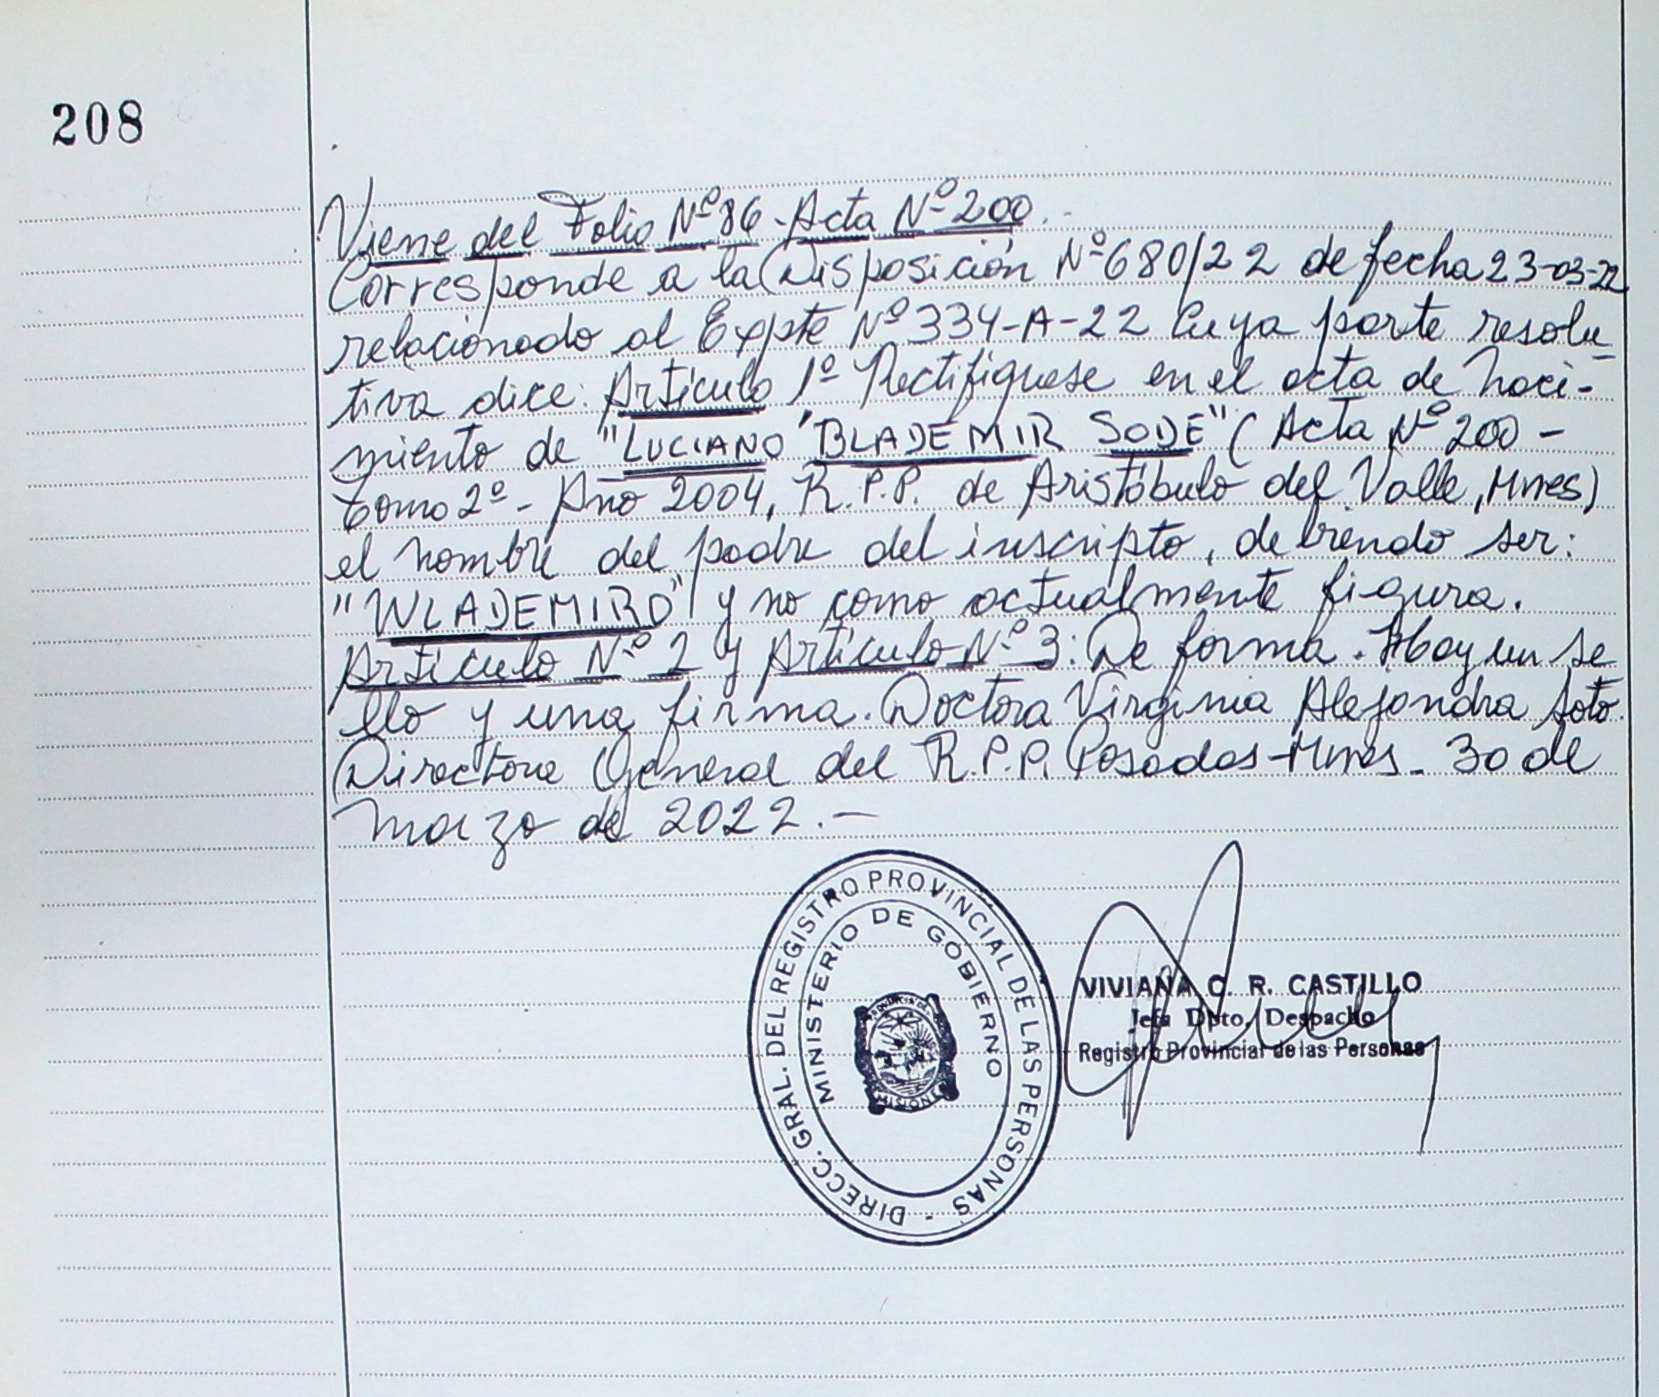 208
Viene del Folio Nº 86 - Acta Nº 200.-
Corresponde a la Disposición Nº 680/22 de fecha 23-03-22
relacionado al Expte Nº 334-A-22 Cuya parte resolu-
tiva dice: Artículo 1º Rectifíquese en el acta de naci-
miento de "LUCIANO BLADEMIR SODE" (Acta Nº 200 -
tomo 2º - Año 2004, R.P.P. de Aristóbulo del Valle, Mnes)
el nombre del padre del inscripto, debiendo ser:
"WLADEMIRO" y no como actualmente figura.
Artículo Nº 2 y Artículo Nº 3: De forma. Hay un se
llo y una firma. Doctora Virginia Alejandra Soto.
Directora General del R.P.P. Posadas-Mnes- 30 de
marzo de 2022.-
DIRECC. GRAL. DEL REGISTRO PROVINCIAL DE LAS PERSONAS -
MINISTERIO DE GOBIERNO
MISIONES
VIVIANA C. R. CASTILLO
Jefa Dpto. Despacho
Registro Provincial de las Personas